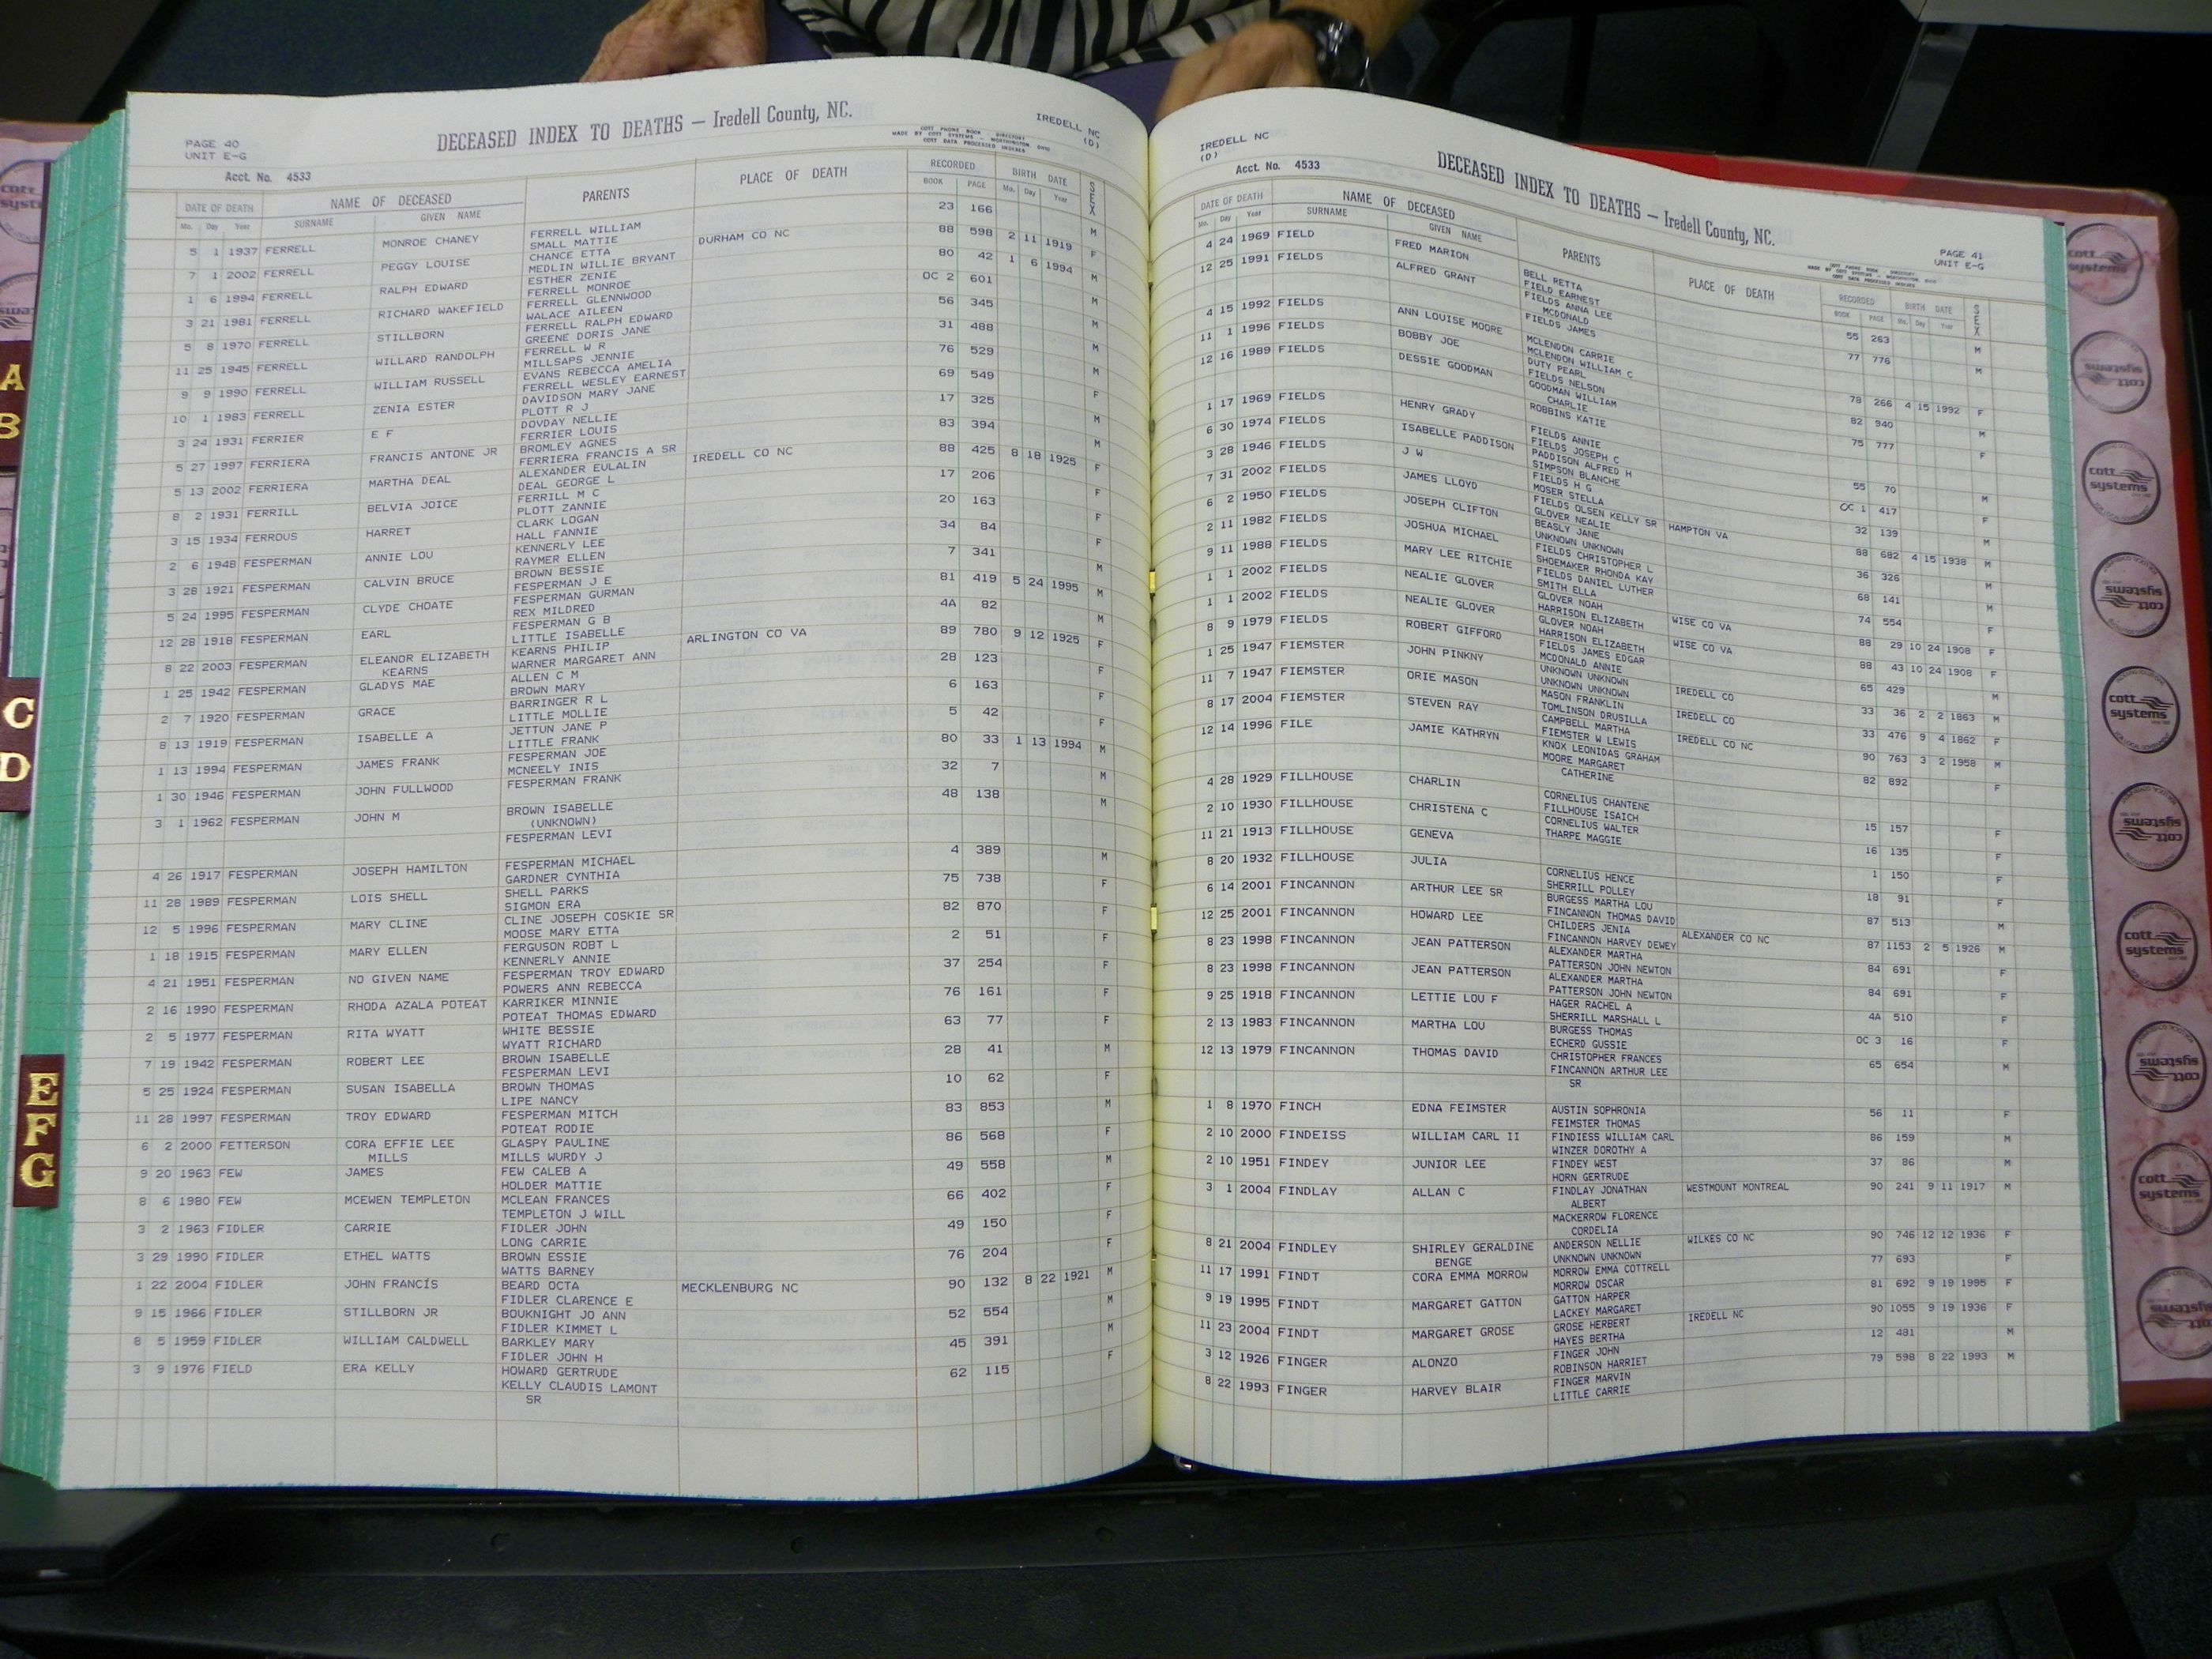 PAGE 40
UNIT E-G
DECEASED INDEX TO DEATHS — Iredell County, NC.
IREDELL NC
(D)
COTT PHONE BOOK DIRECTORY
MADE BY COTT SYSTEMS - WORTHINGTON, OHIO
COTT DATA PROCESSED INDEXES
Acct. No. 4533
DATE OF DEATH NAME OF DECEASED PARENTS PLACE OF DEATH RECORDED BIRTH DATE SEX
Mo. Day Year SURNAME GIVEN NAME BOOK PAGE Mo. Day Year
5 1 1937 FERRELL MONROE CHANEY FERRELL WILLIAM 23 166 M
SMALL MATTIE
7 1 2002 FERRELL PEGGY LOUISE CHANCE ETTA DURHAM CO NC 88 598 2 11 1919 F
MEDLIN WILLIE BRYANT
1 6 1994 FERRELL RALPH EDWARD ESTHER ZENIE 80 42 1 6 1994 M
FERRELL MONROE
3 21 1981 FERRELL RICHARD WAKEFIELD FERRELL GLENNWOOD OC 2 601 M
WALACE AILEEN
5 8 1970 FERRELL STILLBORN FERRELL RALPH EDWARD 56 345 M
GREENE DORIS JANE
11 25 1945 FERRELL WILLARD RANDOLPH FERRELL W R 31 488 M
MILLSAPS JENNIE
9 9 1990 FERRELL WILLIAM RUSSELL EVANS REBECCA AMELIA 76 529 M
FERRELL WESLEY EARNEST
10 1 1983 FERRELL ZENIA ESTER DAVIDSON MARY JANE 69 549 F
PLOTT R J
3 24 1931 FERRIER E F DOVDAY NELLIE 17 325 M
FERRIER LOUIS
5 27 1997 FERRIERA FRANCIS ANTONE JR BROMLEY AGNES 83 394 M
FERRIERA FRANCIS A SR
5 13 2002 FERRIERA MARTHA DEAL ALEXANDER EULALIN IREDELL CO NC 88 425 8 18 1925 F
DEAL GEORGE L
8 2 1931 FERRILL BELVIA JOICE FERRILL M C 17 206 F
PLOTT ZANNIE
3 15 1934 FERROUS HARRET CLARK LOGAN 20 163 F
HALL FANNIE
2 6 1948 FESPERMAN ANNIE LOU KENNERLY LEE 34 84 F
RAYMER ELLEN
3 28 1921 FESPERMAN CALVIN BRUCE BROWN BESSIE 7 341 M
FESPERMAN J E
5 24 1995 FESPERMAN CLYDE CHOATE FESPERMAN GURMAN 81 419 5 24 1995 M
REX MILDRED
12 28 1918 FESPERMAN EARL FESPERMAN G B 4A 82 M
LITTLE ISABELLE
8 22 2003 FESPERMAN ELEANOR ELIZABETH KEARNS PHILIP ARLINGTON CO VA 89 780 9 12 1925 F
KEARNS WARNER MARGARET ANN
1 25 1942 FESPERMAN GLADYS MAE ALLEN C M 28 123 F
BROWN MARY
2 7 1920 FESPERMAN GRACE BARRINGER R L 6 163 F
LITTLE MOLLIE
8 13 1919 FESPERMAN ISABELLE A JETTUN JANE P 5 42 F
LITTLE FRANK
1 13 1994 FESPERMAN JAMES FRANK FESPERMAN JOE 80 33 1 13 1994 M
MCNEELY INIS
1 30 1946 FESPERMAN JOHN FULLWOOD FESPERMAN FRANK 32 7 M
3 1 1962 FESPERMAN JOHN M BROWN ISABELLE 48 138 M
(UNKNOWN)
FESPERMAN LEVI
4 26 1917 FESPERMAN JOSEPH HAMILTON FESPERMAN MICHAEL 4 389 M
GARDNER CYNTHIA
11 28 1989 FESPERMAN LOIS SHELL SHELL PARKS 75 738 F
SIGMON ERA
12 5 1996 FESPERMAN MARY CLINE CLINE JOSEPH COSKIE SR 82 870 F
MOOSE MARY ETTA
1 18 1915 FESPERMAN MARY ELLEN FERGUSON ROBT L 2 51 F
KENNERLY ANNIE
4 21 1951 FESPERMAN NO GIVEN NAME FESPERMAN TROY EDWARD 37 254 F
POWERS ANN REBECCA
2 16 1990 FESPERMAN RHODA AZALA POTEAT KARRIKER MINNIE 76 161 F
POTEAT THOMAS EDWARD
2 5 1977 FESPERMAN RITA WYATT WHITE BESSIE 63 77 F
WYATT RICHARD
7 19 1942 FESPERMAN ROBERT LEE BROWN ISABELLE 28 41 M
FESPERMAN LEVI
5 25 1924 FESPERMAN SUSAN ISABELLA BROWN THOMAS 10 62 F
LIPE NANCY
11 28 1997 FESPERMAN TROY EDWARD FESPERMAN MITCH 83 853 M
POTEAT RODIE
6 2 2000 FETTERSON CORA EFFIE LEE GLASPY PAULINE 86 568 F
MILLS MILLS WURDY J
9 20 1963 FEW JAMES FEW CALEB A 49 558 M
HOLDER MATTIE
8 6 1980 FEW MCEWEN TEMPLETON MCLEAN FRANCES 66 402 F
TEMPLETON J WILL
3 2 1963 FIDLER CARRIE FIDLER JOHN 49 150 F
LONG CARRIE
3 29 1990 FIDLER ETHEL WATTS BROWN ESSIE 76 204 F
WATTS BARNEY
1 22 2004 FIDLER JOHN FRANCIS BEARD OCTA MECKLENBURG NC 90 132 8 22 1921 M
FIDLER CLARENCE E
9 15 1966 FIDLER STILLBORN JR BOUKNIGHT JO ANN 52 554 M
FIDLER KIMMET L
8 5 1959 FIDLER WILLIAM CALDWELL BARKLEY MARY 45 391 M
FIDLER JOHN H
3 9 1976 FIELD ERA KELLY HOWARD GERTRUDE 62 115 F
KELLY CLAUDIS LAMONT
SR
IREDELL NC
(D)
Acct. No. 4533
DECEASED INDEX TO DEATHS — Iredell County, NC.
PAGE 41
UNIT E-G
COTT PHONE BOOK DIRECTORY
MADE BY COTT SYSTEMS - WORTHINGTON, OHIO
COTT DATA PROCESSED INDEXES
DATE OF DEATH NAME OF DECEASED PARENTS PLACE OF DEATH RECORDED BIRTH DATE SEX
Mo. Day Year SURNAME GIVEN NAME BOOK PAGE Mo. Day Year
4 24 1969 FIELD FRED MARION BELL RETTA 55 263 M
FIELD EARNEST
12 25 1991 FIELDS ALFRED GRANT FIELDS ANNA LEE 77 776 M
MCDONALD
FIELDS JAMES
4 15 1992 FIELDS ANN LOUISE MOORE MCLENDON CARRIE 78 266 4 15 1992 F
MCLENDON WILLIAM C
11 1 1996 FIELDS BOBBY JOE DUTY PEARL 82 940 M
FIELDS NELSON
12 16 1989 FIELDS DESSIE GOODMAN GOODMAN WILLIAM 75 777 F
CHARLIE
ROBBINS KATIE
1 17 1969 FIELDS HENRY GRADY FIELDS ANNIE 55 70 M
FIELDS JOSEPH C
6 30 1974 FIELDS ISABELLE PADDISON PADDISON ALFRED H OC 1 417 F
SIMPSON BLANCHE
3 28 1946 FIELDS J W FIELDS H G 32 139 M
MOSER STELLA
7 31 2002 FIELDS JAMES LLOYD FIELDS OLSEN KELLY SR HAMPTON VA 88 682 4 15 1938 M
GLOVER NEALIE
6 2 1950 FIELDS JOSEPH CLIFTON BEASLY JANE 36 326 M
UNKNOWN UNKNOWN
2 11 1982 FIELDS JOSHUA MICHAEL FIELDS CHRISTOPHER L 68 141 M
SHOEMAKER RHONDA KAY
9 11 1988 FIELDS MARY LEE RITCHIE FIELDS DANIEL LUTHER 74 554 F
SMITH ELLA
1 1 2002 FIELDS NEALIE GLOVER GLOVER NOAH WISE CO VA 88 29 10 24 1908 F
HARRISON ELIZABETH
1 1 2002 FIELDS NEALIE GLOVER GLOVER NOAH WISE CO VA 88 43 10 24 1908 F
HARRISON ELIZABETH
8 9 1979 FIELDS ROBERT GIFFORD FIELDS JAMES EDGAR 65 429 M
MCDONALD ANNIE
1 25 1947 FIEMSTER JOHN PINKNY UNKNOWN UNKNOWN IREDELL CO 33 36 2 2 1863 M
UNKNOWN UNKNOWN
11 7 1947 FIEMSTER ORIE MASON MASON FRANKLIN IREDELL CO 33 476 9 4 1862 F
TOMLINSON DRUSILLA
8 17 2004 FIEMSTER STEVEN RAY CAMPBELL MARTHA IREDELL CO NC 90 763 3 2 1958 M
FIEMSTER W LEWIS
12 14 1996 FILE JAMIE KATHRYN KNOX LEONIDAS GRAHAM 82 892 F
MOORE MARGARET
CATHERINE
4 28 1929 FILLHOUSE CHARLIN CORNELIUS CHANTENE 15 157 F
FILLHOUSE ISAICH
2 10 1930 FILLHOUSE CHRISTENA C CORNELIUS WALTER 16 135 F
THARPE MAGGIE
11 21 1913 FILLHOUSE GENEVA 1 150 F
8 20 1932 FILLHOUSE JULIA CORNELIUS HENCE 18 91 F
SHERRILL POLLEY
6 14 2001 FINCANNON ARTHUR LEE SR BURGESS MARTHA LOU 87 513 M
FINCANNON THOMAS DAVID
12 25 2001 FINCANNON HOWARD LEE CHILDERS JENIA ALEXANDER CO NC 87 1153 2 5 1926 M
FINCANNON HARVEY DEWEY
8 23 1998 FINCANNON JEAN PATTERSON ALEXANDER MARTHA 84 691 F
PATTERSON JOHN NEWTON
8 23 1998 FINCANNON JEAN PATTERSON ALEXANDER MARTHA 84 691 F
PATTERSON JOHN NEWTON
9 25 1918 FINCANNON LETTIE LOU F HAGER RACHEL A 4A 510 F
SHERRILL MARSHALL L
2 13 1983 FINCANNON MARTHA LOU BURGESS THOMAS OC 3 16 F
ECHERD GUSSIE
12 13 1979 FINCANNON THOMAS DAVID CHRISTOPHER FRANCES 65 654 M
FINCANNON ARTHUR LEE
SR
1 8 1970 FINCH EDNA FEIMSTER AUSTIN SOPHRONIA 56 11 F
FEIMSTER THOMAS
2 10 2000 FINDEISS WILLIAM CARL II FINDIESS WILLIAM CARL 86 159 M
WINZER DOROTHY A
2 10 1951 FINDEY JUNIOR LEE FINDEY WEST 37 86 M
HORN GERTRUDE
3 1 2004 FINDLAY ALLAN C FINDLAY JONATHAN WESTMOUNT MONTREAL 90 241 9 11 1917 M
ALBERT
MACKERROW FLORENCE
CORDELIA
8 21 2004 FINDLEY SHIRLEY GERALDINE ANDERSON NELLIE WILKES CO NC 90 746 12 12 1936 F
BENGE UNKNOWN UNKNOWN
11 17 1991 FINDT CORA EMMA MORROW MORROW EMMA COTTRELL 77 693 F
MORROW OSCAR
9 19 1995 FINDT MARGARET GATTON GATTON HARPER 81 692 9 19 1995 F
LACKEY MARGARET
11 23 2004 FINDT MARGARET GROSE GROSE HERBERT IREDELL NC 90 1055 9 19 1936 F
HAYES BERTHA
3 12 1926 FINGER ALONZO FINGER JOHN 12 481 M
ROBINSON HARRIET
8 22 1993 FINGER HARVEY BLAIR FINGER MARVIN 79 598 8 22 1993 M
LITTLE CARRIE
A
B
C
D
E
F
G
cott
systems
cott
systems
cott
systems
cott
systems
cott
systems